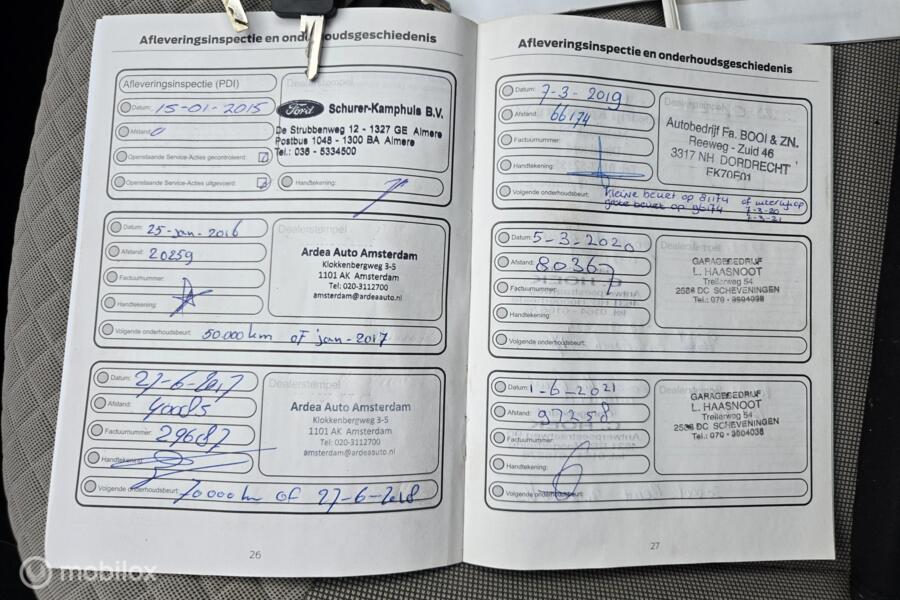 Afleveringsinspectie en onderhoudsgeschiedenis
Afleveringsinspectie (PDI)
Dealerstempel
Datum: 15-01-2015
Afstand: 0
Openstaande Service-Acties gecontroleerd:
Openstaande Service-Acties uitgevoerd:
Handtekening:
Ford Schurer-Kamphuis B.V.
De Strubbenweg 12 - 1327 GE Almere
Postbus 1048 - 1300 BA Almere
Tel.: 036 - 5334500
Datum: 25-jan-2016
Afstand: 20259
Factuurnummer:
Handtekening:
Volgende onderhoudsbeurt: 50.000 km of jan-2017
Dealerstempel
Ardea Auto Amsterdam
Klokkenbergweg 3-5
1101 AK Amsterdam
Tel: 020-3112700
amsterdam@ardeaauto.nl
Datum: 27-6-2017
Afstand: 40085
Factuurnummer: 29687
Handtekening:
Volgende onderhoudsbeurt: 70000 km of 27-6-2018
Dealerstempel
Ardea Auto Amsterdam
Klokkenbergweg 3-5
1101 AK Amsterdam
Tel: 020-3112700
amsterdam@ardeaauto.nl
26
Afleveringsinspectie en onderhoudsgeschiedenis
Datum: 7-3-2019
Afstand: 66174
Factuurnummer:
Handtekening:
Volgende onderhoudsbeurt: kleine beurt op 81174 of
7-3-20
grote beurt op 96174 7-3-21
Autobedrijf Fa. BOOI & ZN.
Reeweg - Zuid 46
3317 NH DORDRECHT
Datum: 5-3-2020
Afstand: 80367
Factuurnummer:
Handtekening:
Volgende onderhoudsbeurt:
Dealerstempel
GARAGEBEDRIJF
L. HAASNOOT
Treilerweg 54
2583 DC SCHEVENINGEN
Tel.: 070 - 3504038
Datum: 1-6-2021
Afstand: 97258
Factuurnummer:
Handtekening:
Volgende onderhoudsbeurt:
Dealerstempel
GARAGEBEDRIJF
L. HAASNOOT
Treilerweg 54
2583 DC SCHEVENINGEN
Tel.: 070 - 3504038
27
mobilox